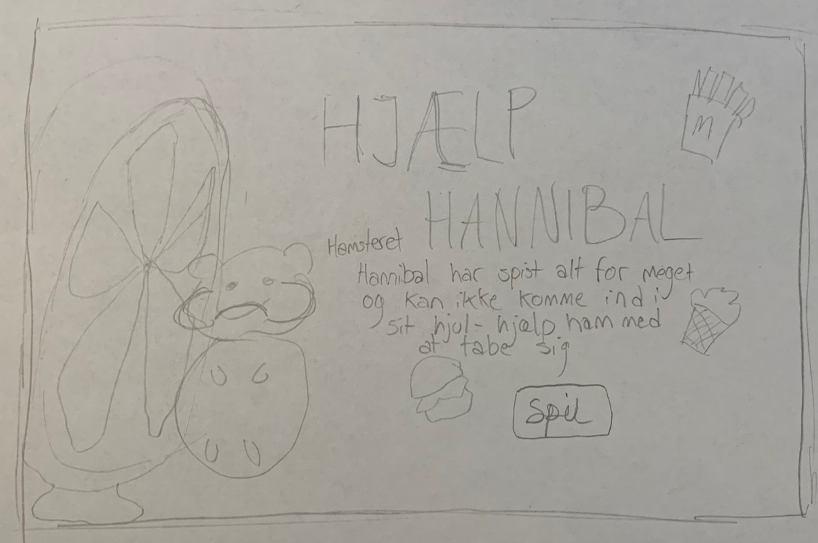 HJÆLP
M
HANNIBAL
Hamsteret
Hannibal har spist alt for meget
og kan ikke komme ind i
sit hjul - hjælp ham med
at tabe sig
Spil